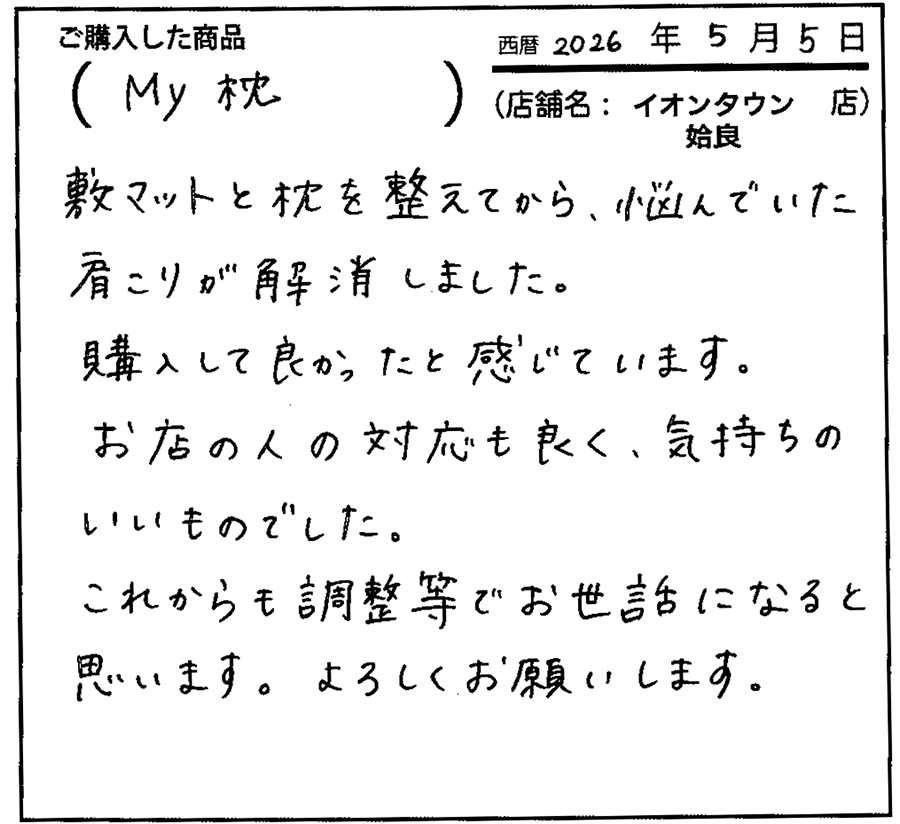 ご購入した商品
(My 枕)
西暦 2026 年 5 月 5 日
(店舗名: イオンタウン 店)
姶良
敷マットと枕を整えてから、悩んでいた
肩こりが解消しました。
購入して良かったと感じています。
お店の人の対応も良く、気持ちの
いいものでした。
これからも調整等でお世話になると
思います。よろしくお願いします。